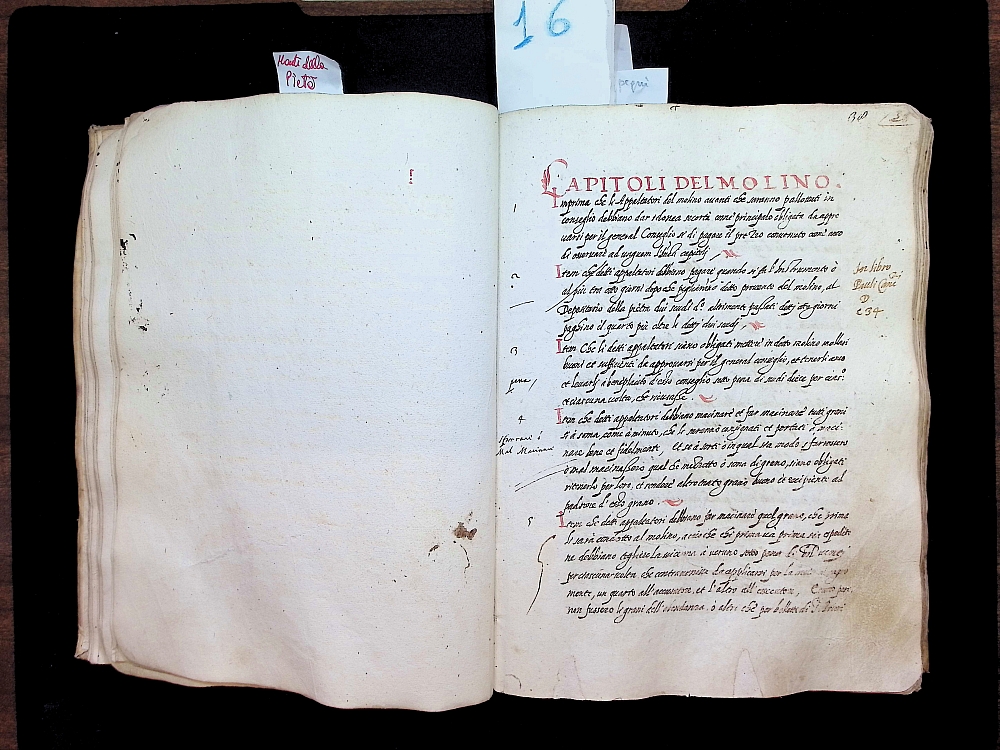 16
Monti della
Pietà
38
CAPITOLI DEL MOLINO.
1
Imprima che li Appaltatori del molino avanti che seranno ballottati in
conseglio debbiano dar idonea sicortà come principale obligata da appro
varsi per il general Conseglio si di pagare il prezzo convenuto come anco
di osservare ad unguem capitoli
2
Item che detti appaltatori debbiano pagare quando si fa l'Instrumento ò
al più tra otto giorni dopo che piglieranno detto provento del molino, al
Depositario della pietra dui scudi altrimente passati detti otto giorni
paghino il quarto più oltre li detti dui scudi
In libro
D
c 34
3
Item Che li detti appaltatori siano obligati mettere in detto molino molinari
buoni et sufficienti da approvarsi per il general conseglio, et tenerli anco
et levarli à beneplacito d'esso conseglio sotto pena di scudi diece per
et ciascuna volta, che ricusasse.
pena
4
Item che detti appaltatori debbiano macinare et far macinare tutti grani
sì à soma, come à minuto, che li seranno consignati et portati à maci-
nare bene et fidelmente, Et se à sorti ò in qual sia modo
ò mal macinassero qual che ò soma di grano, siano obligati
ritenerlo per loro, et rendere altro tanto grano buono et recipiente al
padrone d'esso grano.
Mal Macinare
5
Item che detti appaltatori debbiano far macinare quel grano, che prima
li serà condotto al molino, acciò che chi prima và prima sia espedito
ne debbiano togliere la vicenna à veruno sotto pena di
per ciascuna volta che contravenisse da applicarsi per la
mente, un quarto all'accusatore, et l'altro all'essecutore,
non fussero li grani dell'abondanza, ò altri che per bolletta di